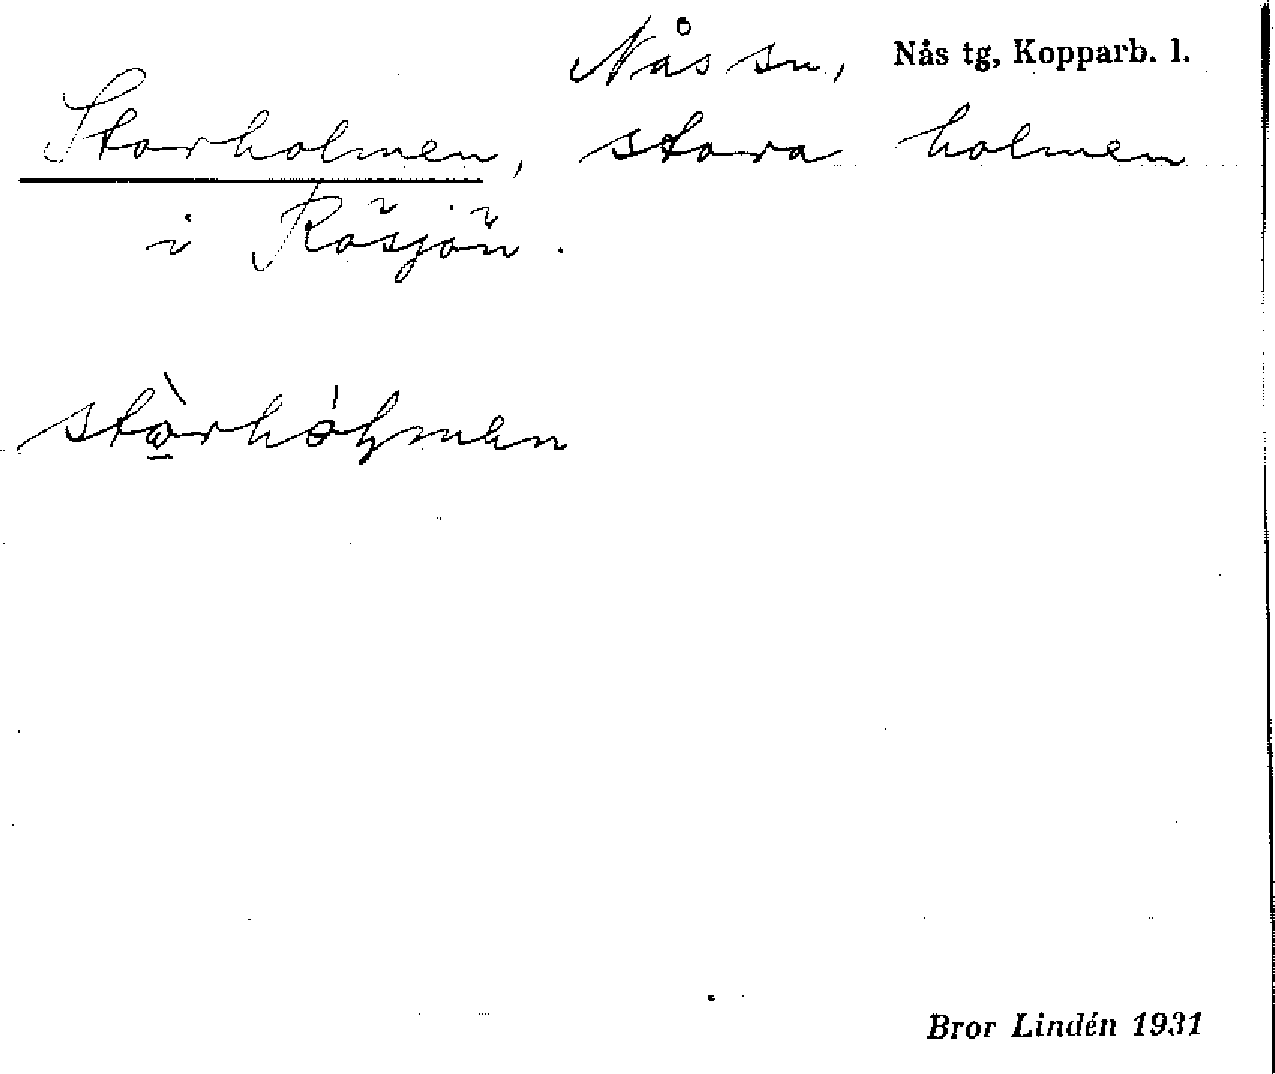 Nås sn, Nås tg, Kopparb. l.
Storholmen, stora holmen
i Rösjön.
stòrhólmen
Bror Lindén 1931